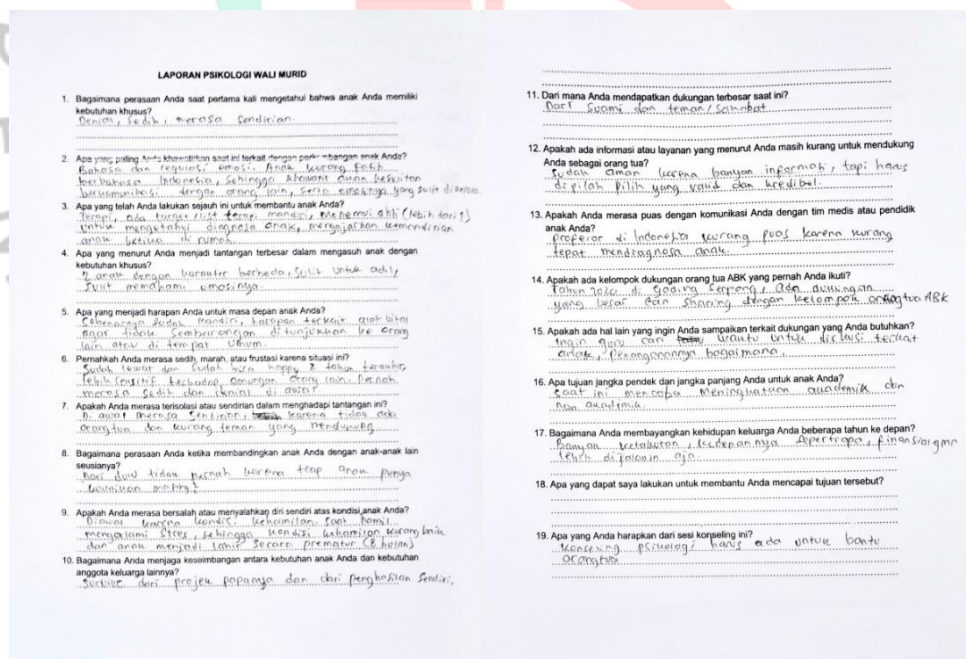 LAPORAN PSIKOLOGI WALI MURID
1. Bagaimana perasaan Anda saat pertama kali mengetahui bahwa anak Anda memiliki
kebutuhan khusus?
Denial, Sedih, merasa Sendirian.
2. Apa yang paling Anda khawatirkan saat ini terkait dengan perkembangan anak Anda?
Bahasa dan regulasi emosi. Anak kurang fasih
berbahasa Indonesia, Sehingga khawatir akan kesulitan
berkomunikasi dengan orang lain, Serta emosinya yang sulit di
3. Apa yang telah Anda lakukan sejauh ini untuk membantu anak Anda?
Terapi, ada target/list terapi mandiri, menemui ahli (lebih dari 1)
untuk mengetahui diagnosa anak, mengajarkan kemandirian
anak ketika di rumah.
4. Apa yang menurut Anda menjadi tantangan terbesar dalam mengasuh anak dengan
kebutuhan khusus?
2 anak dengan karakter berbeda, sulit untuk adil,
Sulit memahami emosinya
5. Apa yang menjadi harapan Anda untuk masa depan anak Anda?
mandiri, harapan terkait alat vital
agar tidak Sembarangan ditunjukkan ke orang
lain atau di tempat Umum.
6. Pernahkah Anda merasa sedih, marah, atau frustasi karena situasi ini?
Sudah lewat dan Sudah bisa happy 2 tahun terakhir,
lebih sensitif terhadap omongan orang lain. Pernah
merasa Sedih dan denial di awal
7. Apakah Anda merasa terisolasi atau sendirian dalam menghadapi tantangan ini?
Di awal merasa Sendirian, karena tidak ada
orangtua dan kurang teman yang mendukung
8. Bagaimana perasaan Anda ketika membandingkan anak Anda dengan anak-anak lain
seusianya?
Dari dulu tidak pernah karena tiap anak punya
keunikan masing2
9. Apakah Anda merasa bersalah atau menyalahkan diri sendiri atas kondisi anak Anda?
Diawal karena kondisi kehamilan. Saat hamil
mengalami Stres, sehingga kondisi kehamilan kurang baik
dan anak menjadi lahir Secara prematur (8 bulan)
10. Bagaimana Anda menjaga keseimbangan antara kebutuhan anak Anda dan kebutuhan
anggota keluarga lainnya?
Survive dari projek papanya dan dari penghasilan Sendiri.
11. Dari mana Anda mendapatkan dukungan terbesar saat ini?
Dari Suami dan teman/Sahabat
12. Apakah ada informasi atau layanan yang menurut Anda masih kurang untuk mendukung
Anda sebagai orang tua?
Sudah aman karena banyak informasi, tapi harus
dipilah pilih yang valid dan kredibel.
13. Apakah Anda merasa puas dengan komunikasi Anda dengan tim medis atau pendidik
anak Anda?
di Indonesia kurang puas karena kurang
tepat mendiagnosa anak.
14. Apakah ada kelompok dukungan orang tua ABK yang pernah Anda ikuti?
di Gading Serpong, ada dukungan
yang besar dan Sharing dengan kelompok orangtua ABK
15. Apakah ada hal lain yang ingin Anda sampaikan terkait dukungan yang Anda butuhkan?
Ingin guru cari waktu untuk diskusi terkait
anak, Penanganannya bagaimana.
16. Apa tujuan jangka pendek dan jangka panjang Anda untuk anak Anda?
Saat ini mencoba Meningkatkan akademik dan
non akademik.
17. Bagaimana Anda membayangkan kehidupan keluarga Anda beberapa tahun ke depan?
Banyak ketakutan, kedepannya Seperti apa, finansial gmn
lebih dijalanin aja.
18. Apa yang dapat saya lakukan untuk membantu Anda mencapai tujuan tersebut?
19. Apa yang Anda harapkan dari sesi konseling ini?
Konseling psikologi harus ada untuk bantu
orangtua